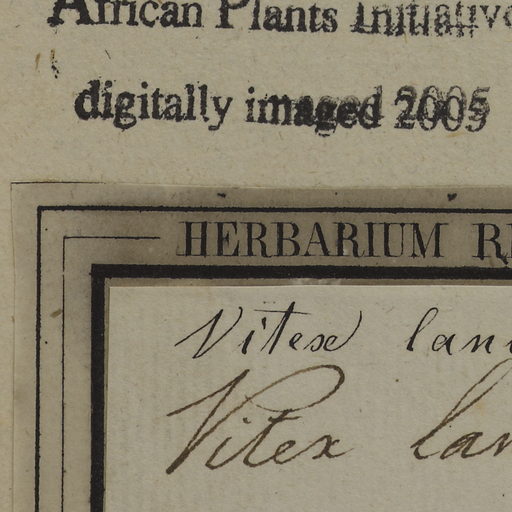 African Plants Initiative
digitally imaged 2005
HERBARIUM
Vitex
Vitex